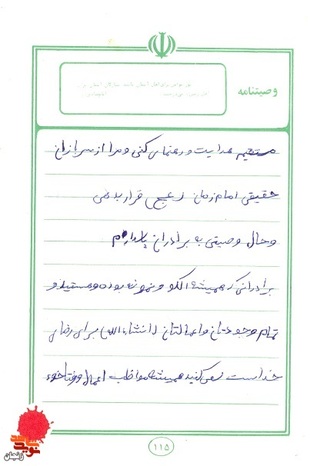 وصیتنامه
مستقیم هدایت و رهنمایی کنی و مرا از سربازان
حقیقی امام زمان (عج) قرار بدهی
و حال وصیتی به برادران پاسدارم
برادرانی که همیشه الگو و نمونه بوده و هستید و
تمام وجودتان و اعمالتان (انشاءالله) برای رضای
خداست سعی کنید همیشه مواظب اعمال و رفتار خود
۱۱۵
زنجان